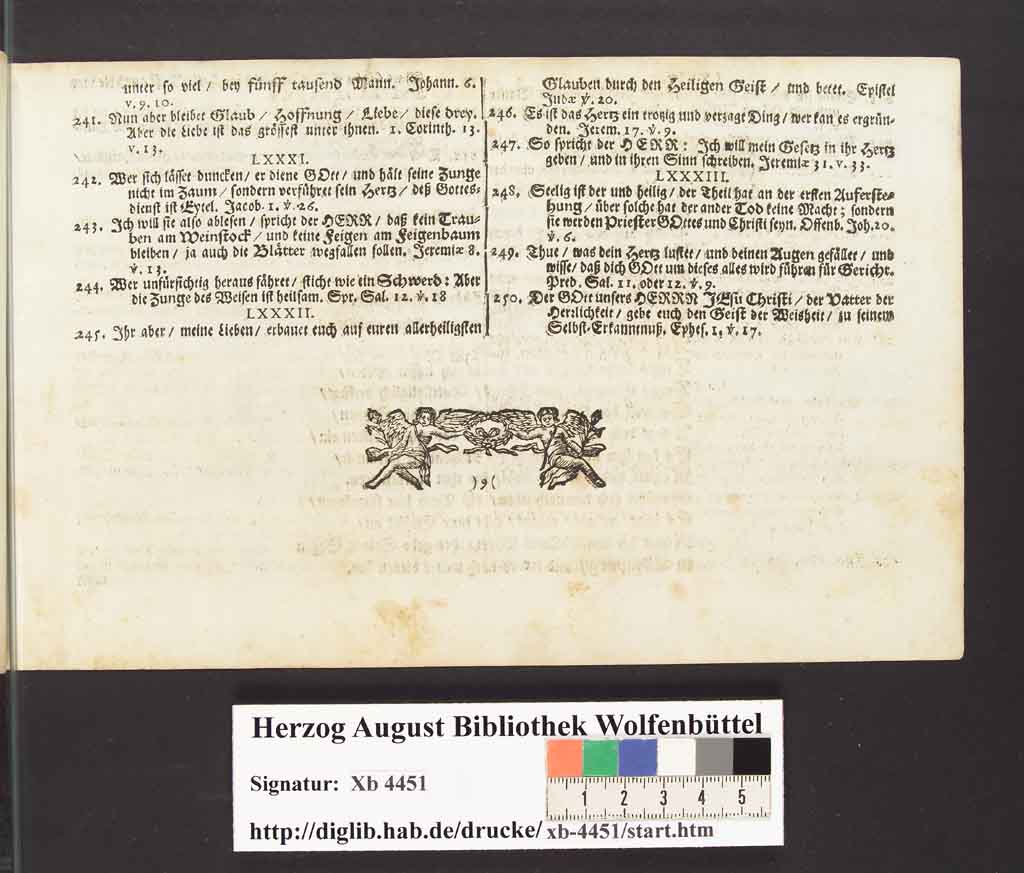 unter so viel / bey fünff tausend Mann. Johann. 6.
v. 9. 10.
241. Nun aber bleibet Glaub / Hoffnung / Liebe / diese drey.
Aber die Liebe ist das grössest unter ihnen. 1. Corinth. 13.
v. 13.
LXXXI.
242. Wer sich lässet duncken / er diene GOtt / und hält seine Zunge
nicht im Zaum / sondern verführet sein Hertz / deß Gottes-
dienst ist Eytel. Jacob. 1. v. 26.
243. Ich will sie also ablesen / spricht der HERR / daß kein Trau-
ben am Weinstock / und keine Feigen am Feigenbaum
bleiben / ja auch die Blätter wegfallen sollen. Jeremiæ 8.
v. 13.
244. Wer unfürsichtig heraus fähret / sticht wie ein Schwerd: Aber
die Zunge des Weisen ist heilsam. Spr. Sal. 12. v. 18
LXXXII.
245. Ihr aber / meine Lieben / erbauet euch auf euren allerheiligsten
Glauben durch den Heiligen Geist / und betet. Epistel
Judæ v. 20.
246. Es ist das Hertz ein trotzig und verzagt Ding / wer kan es ergrün-
den. Jerem. 17. v. 9.
247. So spricht der HERR: Ich will mein Gesetz in ihr Hertz
geben / und in ihren Sinn schreiben. Jeremiæ 31. v. 33.
LXXXIII.
248. Seelig ist der und heilig / der Theil hat an der ersten Auferste-
hung / über solche hat der ander Tod keine Macht; sondern
sie werden Priester GOttes und Christi seyn. Offenb. Joh. 20.
v. 6.
249. Thue / was dein Hertz lustet / und deinen Augen gefället / und
wisse / daß dich GOtt um dieses alles wird führen für Gericht.
Pred. Sal. 11. oder 12. v. 9.
250. Der GOtt unsers HERRN JEsu Christi / der Vatter der
Herzlichkeit / gebe euch den Geist der Weisheit / zu seinem
Selbst-Erkanntnuß. Ephes. 1. v. 17.
) 9 (
Herzog August Bibliothek Wolfenbüttel
Signatur: Xb 4451
1 2 3 4 5
http://diglib.hab.de/drucke/ xb-4451/start.htm